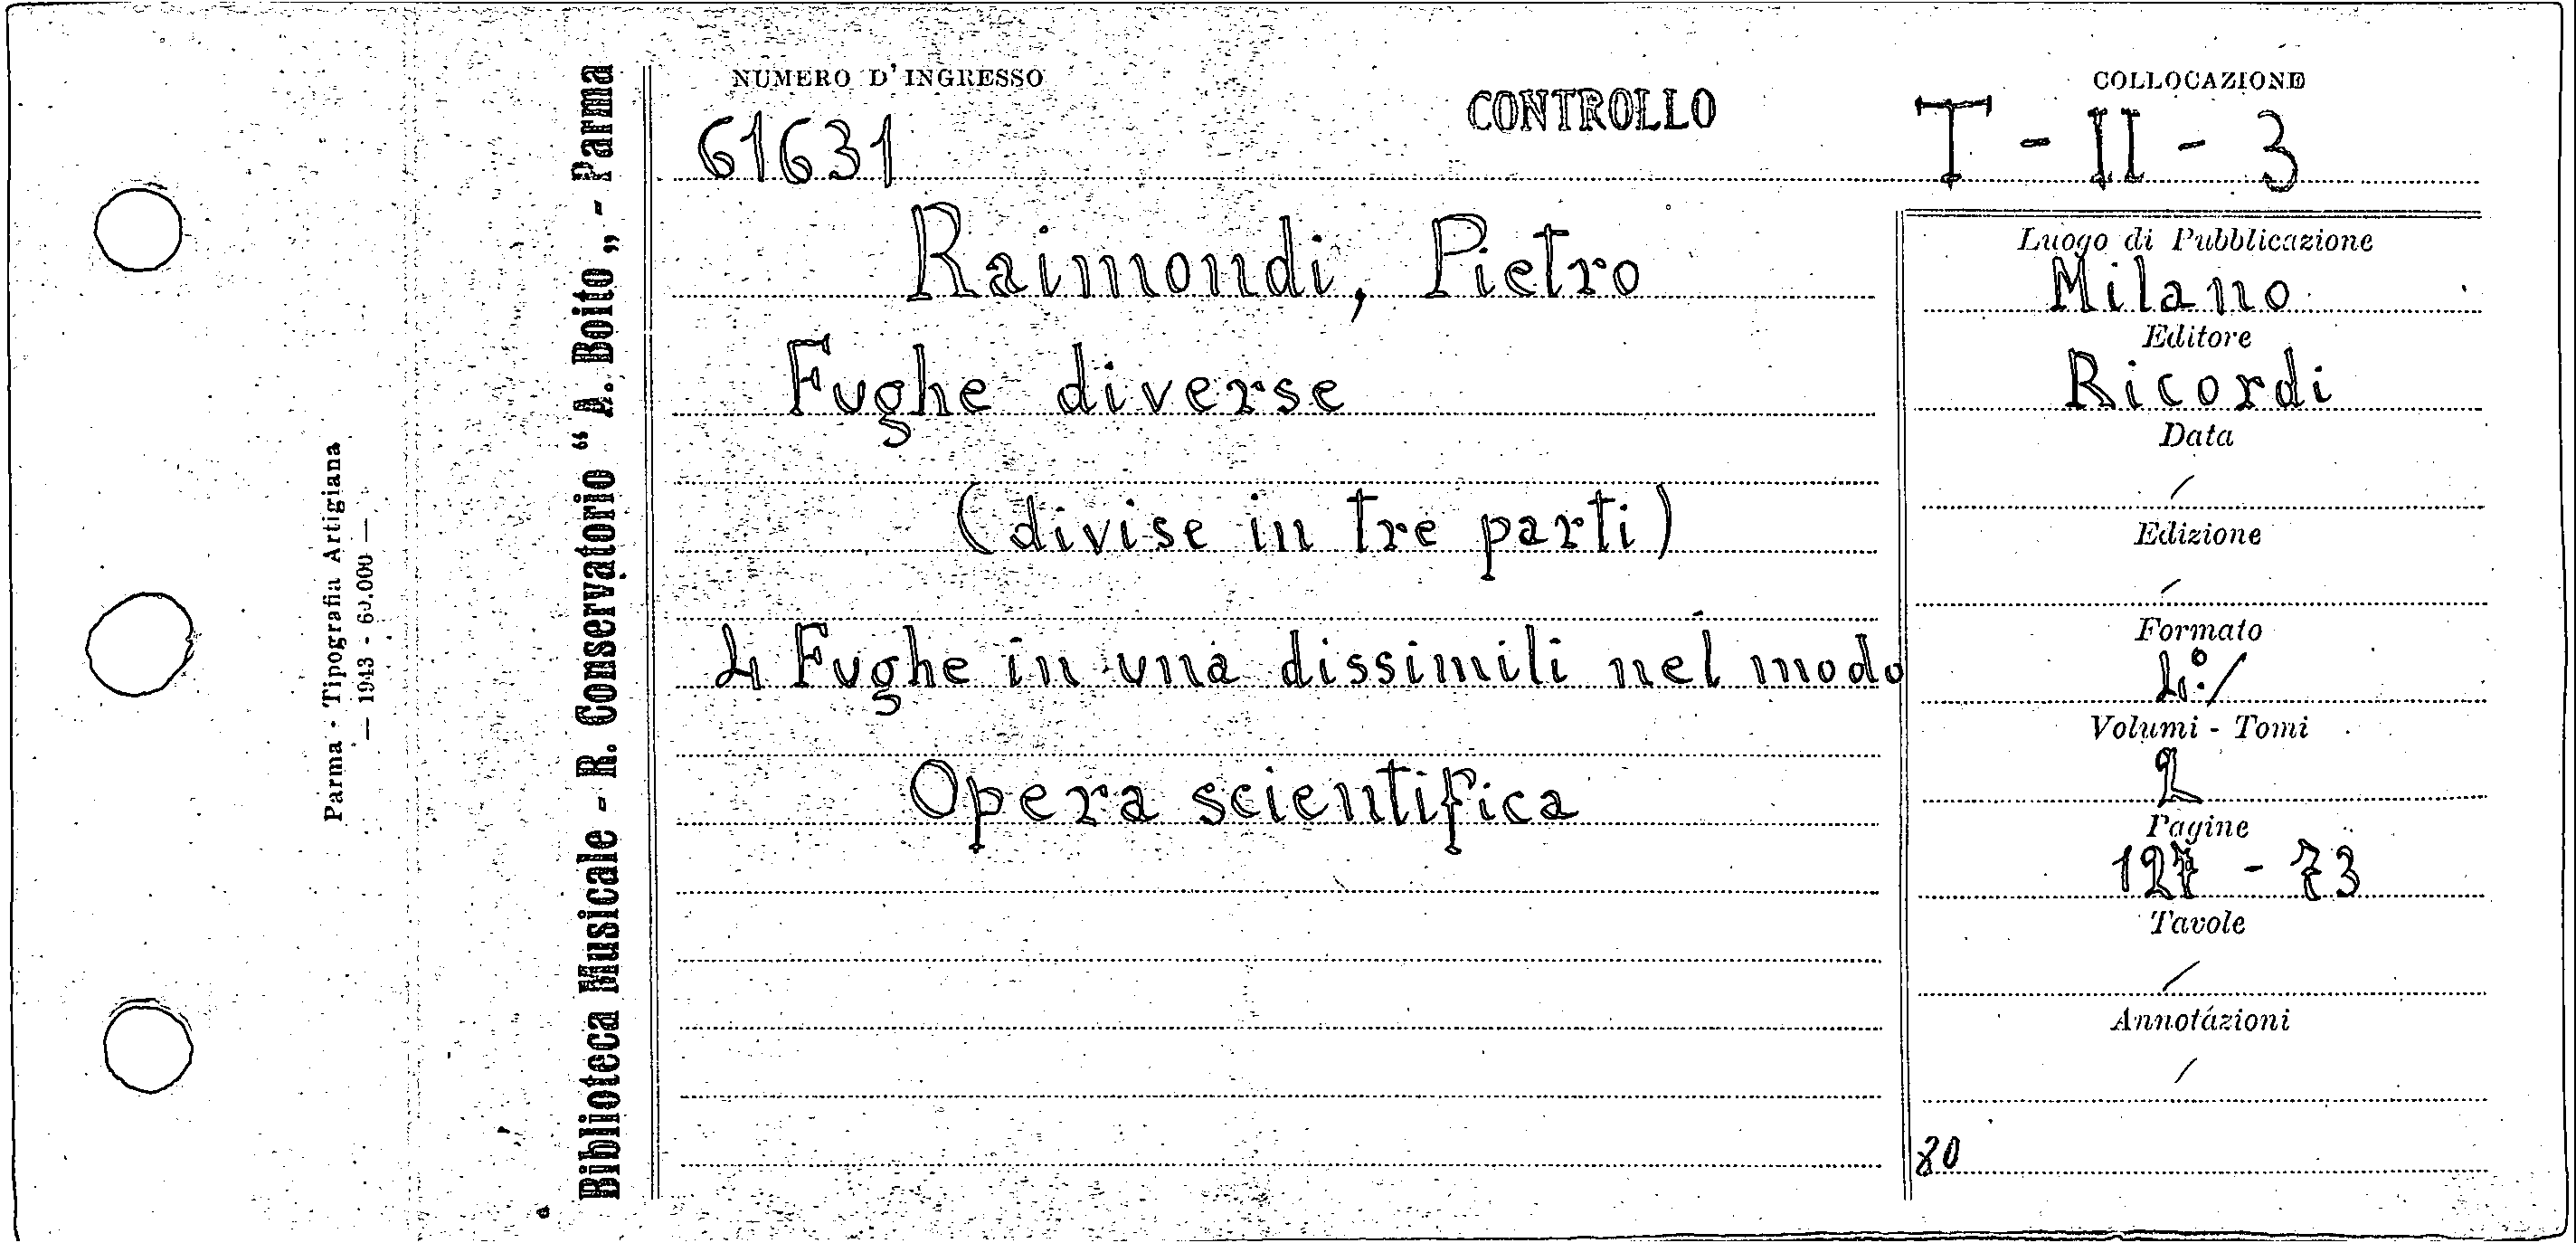 NUMERO D'INGRESSO
COLLOCAZIONE
61631
CONTROLLO
T - II - 3
Raimondi, Pietro
Fughe diverse
(divise in tre parti)
4 Fughe in una dissimili nel modo
Opera scientifica
Luogo di Pubblicazione
Milano
Editore
Ricordi
Data
/
Edizione
/
Formato
4°:/
Volumi - Tomi
2
Pagine
127 - 73
Tavole
/
Annotazioni
/
80
Biblioteca Musicale - R. Conservatorio “ A. Boito „ - Parma
Parma - Tipografia Artigiana
— 1943 - 60.000 —